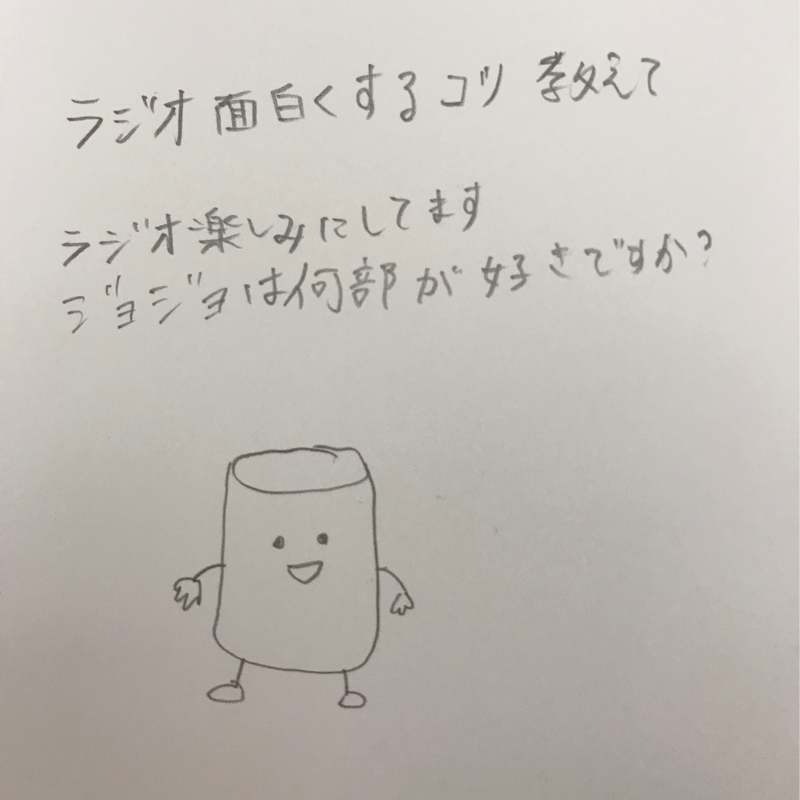 ラジオ面白くするコツ教えて
ラジオ楽しみにしてます
ジョジョは何部が好きですか？